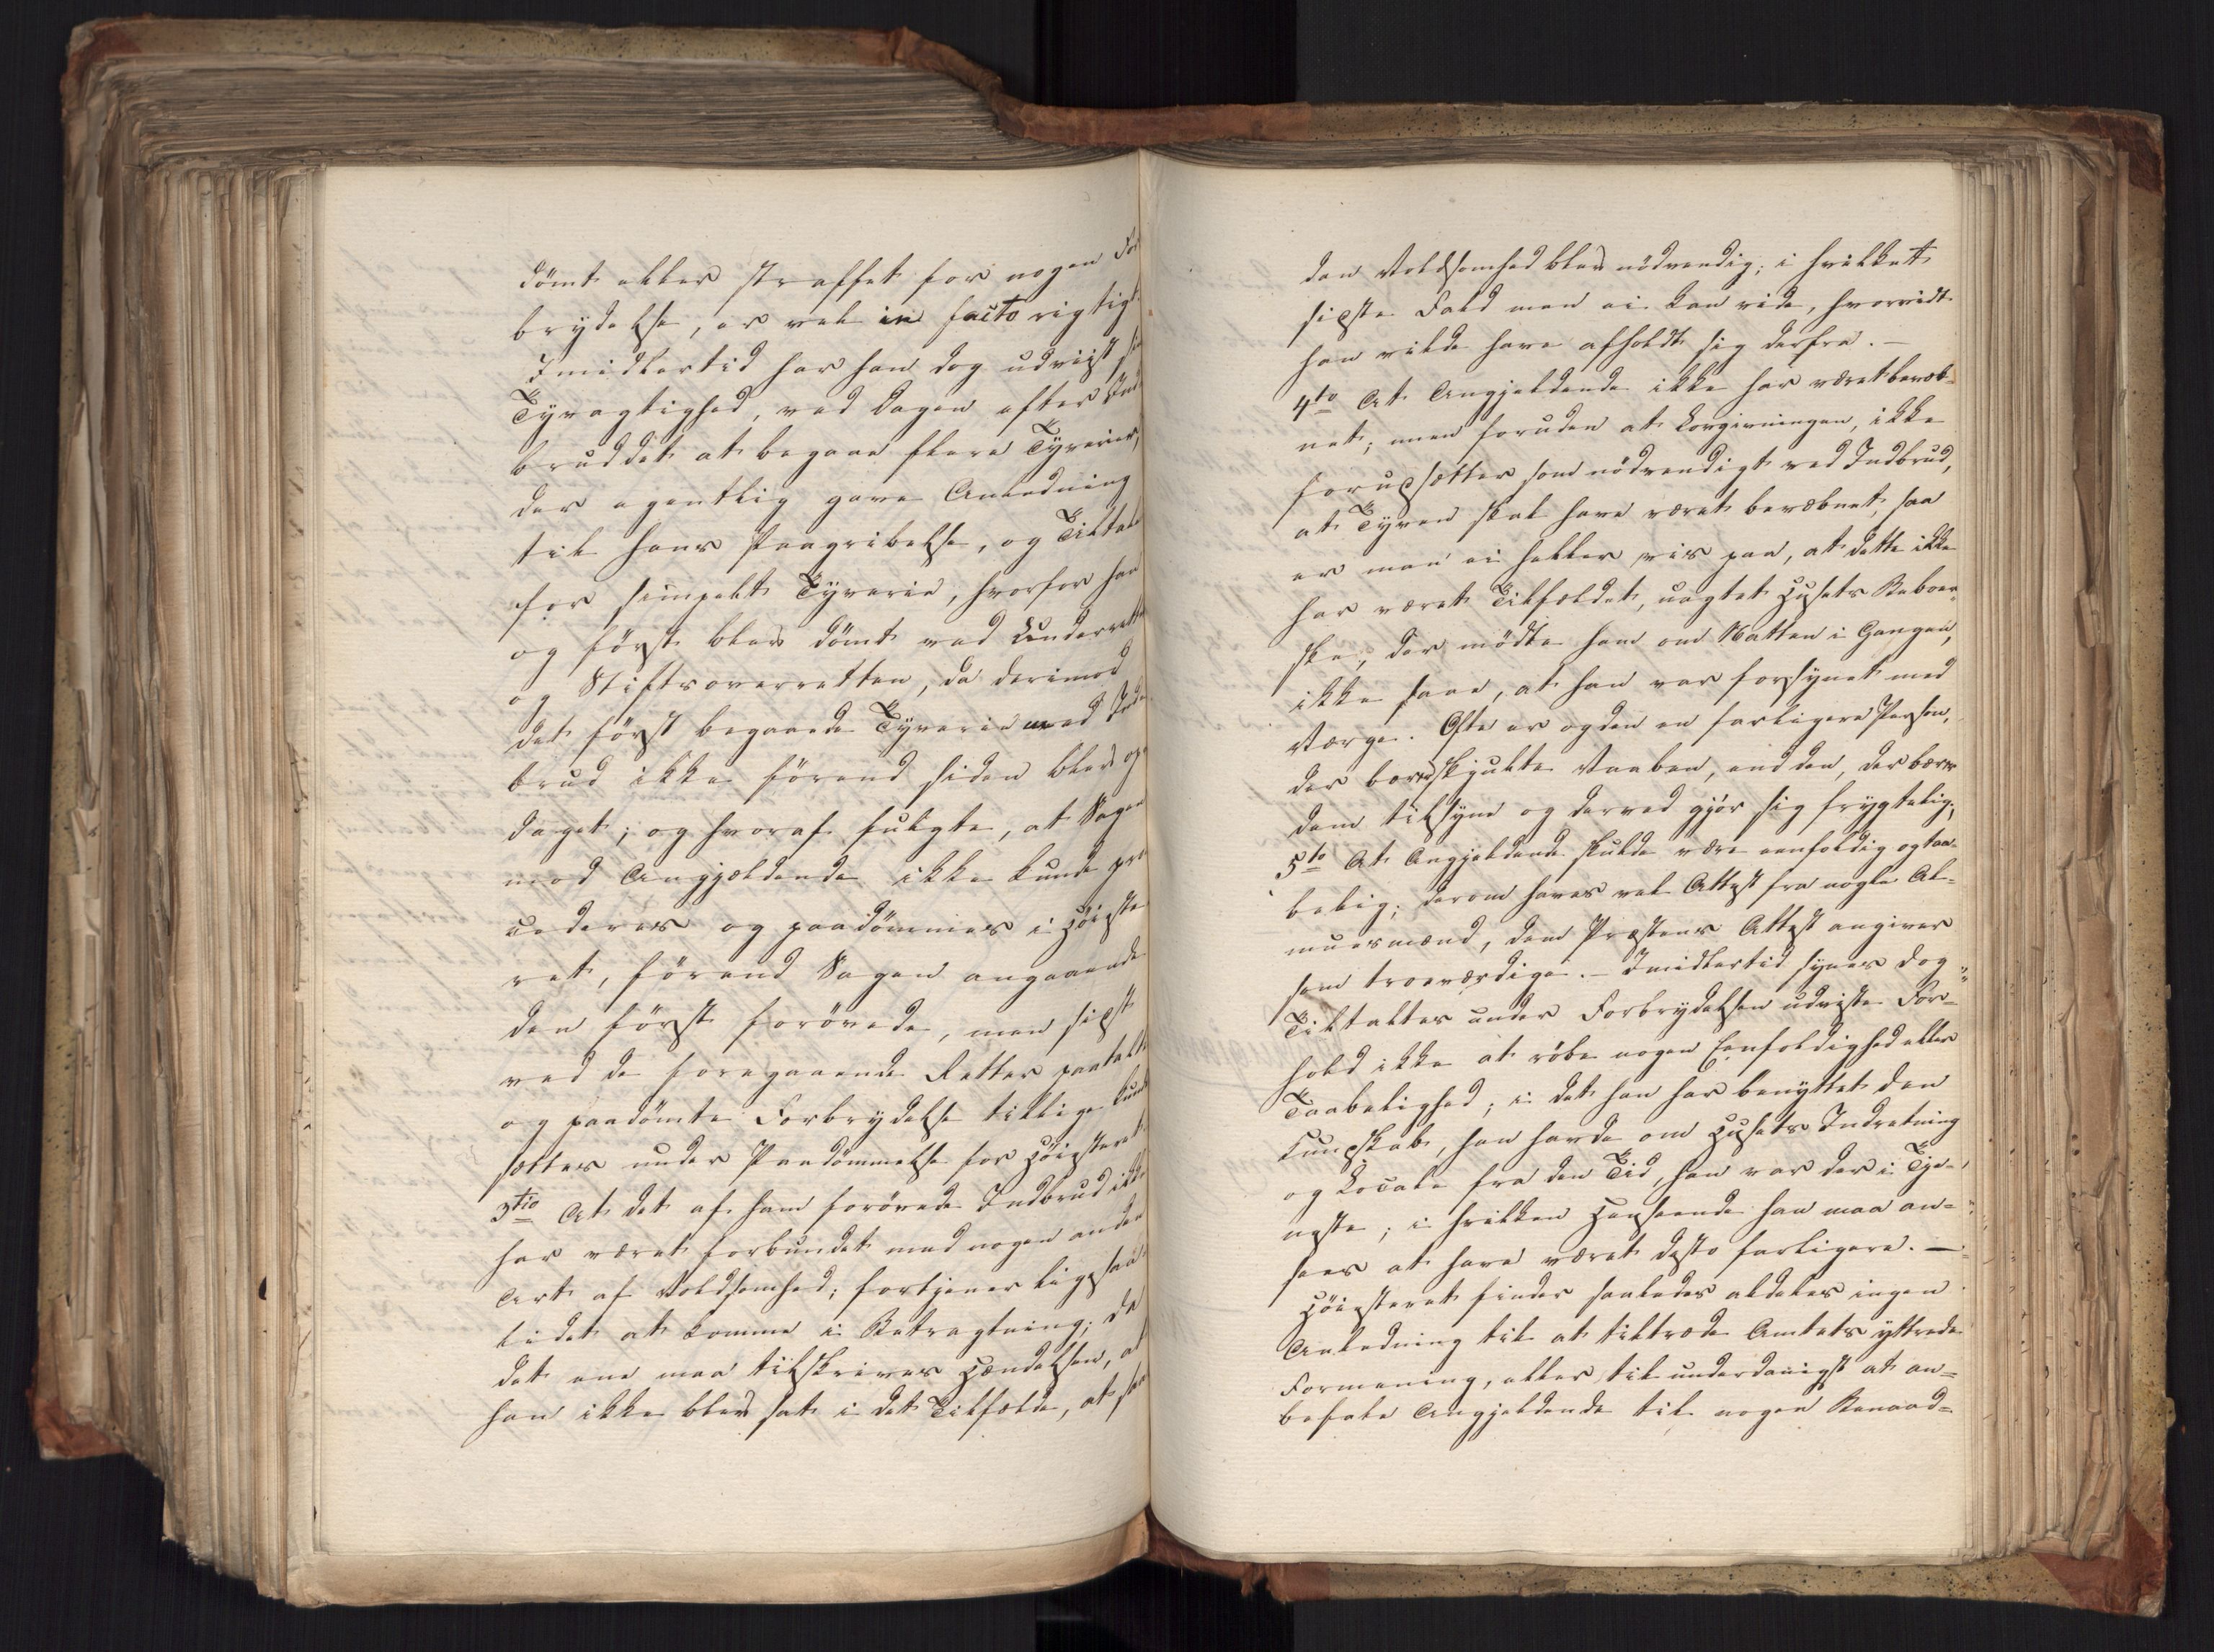 dömt eller straffet for nogen For
brydelse, er vel in facto rigtigt
Imidlertid har han dog udviist sin
Tyvagtighed, ved Dagen efter Ind
bruddet at begaae flere Tyverier,
der egentlig gave Anledning
til hans Paagribelse, og Tiltale
for simpelt Tyverie, hvorfor han
og först blev dömt ved Underretten
og Stiftsoverretten, da derimod
det först begaaede Tyverie med Ind
brud ikke förend siden blev op
daget; og hvoraf fulgte, at Sagen
mod Angjældende ikke kunde pro
cederes og paadömmes i Höieste
ret, förend Sagen angaaende
den först forövede, men sidst
ved de foregaaende Retter paatalte
og paadömte Forbrydelse tillige kunde
sættes under Paadömmelse for Höiesteret.
3tio At det af ham forövede Indbrud ikke
har været forbundet med nogen anden
Art af Voldsomhed; fortjener ligesaa
lidet at komme i Betragtning; da
det ene maa tilskrives Hændelsen, at
han ikke blev sat i det Tilfælde, at saa
den Voldsomhed blev nödvendig; i hvilket
sidste Fald man ei kan vide, hvorvidt
han vilde have afholdt sig derfra. —
4to At Angjeldende ikke har været bevæb-
net; men foruden at Lovgivningen, ikke
forudsætter som nödvendigt ved Indbrud,
at Tyven skal have været bevæbnet, saa
er man ei heller vis paa, at dette ikke
har været Tilfældet, uagtet Husets Beboer-
ske, der mödte ham om Natten i Gangen,
ikke saae, at han var forsynet med
Værge. Ofte er og den en farligere Person,
der bærer skjulte Vaaben, end den, der bærer
dem tilsyne og derved gjör sig frygtelig;
5to At Angjeldende skulde være eenfoldig og taa-
belig; derom haves vel Attest fra nogle Al-
muesmænd, dem Præstens Attest angiver
som troeværdige. — Imidlertid synes dog
Tiltaltes under Forbrydelsen udviste For-
hold ikke at röbe nogen Eenfoldighed eller
Taabelighed; i det han har benyttet den
Kundskab, han havde om Husets Indretning
og Locale fra den Tid, han var der i Tje-
neste; i hvilken Henseende han maa an-
sees at have været desto farligere. —
Höiesteret finder saaledes aldeles ingen
Anledning til at tiltræde Amtets yttrede
Formening, eller til underdanigst at an-
befale Angjeldende til nogen Benaad-